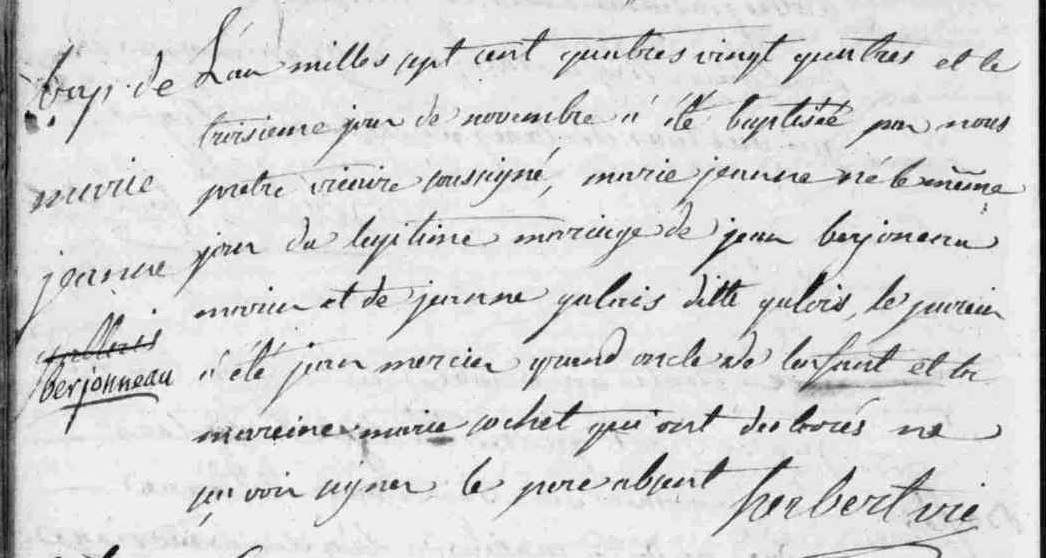 bap. de
marie
jeanne
gallois
berjonneau
L'an milles sept cent quatres vingt quatres et le
troisieme jour de novembre a été baptisée par nous
pretre vicaire soussigné, marie jeanne né le même
jour du legitime mariage de jean berjoneau
marin et de jeanne galais ditte galois, le parein
a été jean mercier grand oncle de lenfant et la
mareine marie cochet qui ont declarés ne
savoir signer le pere absent herbert vic